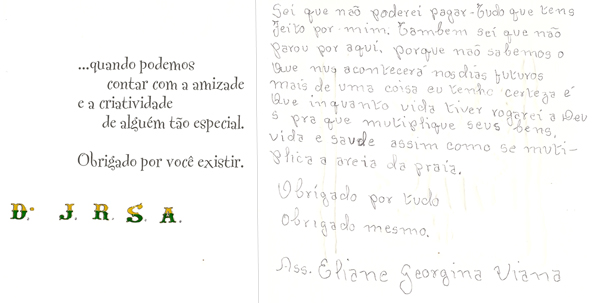 ...quando podemos
contar com a amizade
e a criatividade
de alguém tão especial.
Obrigado por você existir.
D.ª J. R. S. A.
Sei que não poderei pagar tudo que tens
feito por mim. Tambem sei que não
parou por aqui, porque não sabemos o
Que nus acontecerá nos dias futuros
mais de uma coisa eu tenho certeza é
Que inquanto vida tiver rogarei a Deu
s pra que multiplique seus bens,
vida e saude assim como se multi-
plica a areia da praia.
Obrigado por tudo
Obrigado mesmo.
Ass. Eliane Georgina Viana